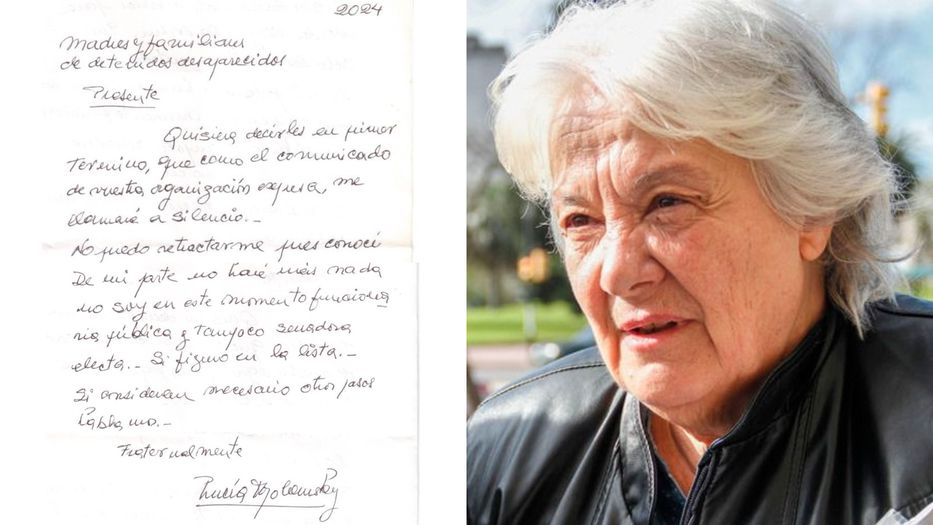 2024
Madres y familiares
de detenidos desaparecidos
Presente
Quisiera decirles en primer
termino, que como el comunicado
de vuestra organización expresa, me
llamaré a silencio.-
No puedo retractarme pues conocí
De mi parte no haré más nada
no soy en este momento funciona
ria pública y tampoco senadora
electa.- Si figuro en la lista.-
Si consideran necesario otros pasos
Fraternalmente
Lucía Topolansky